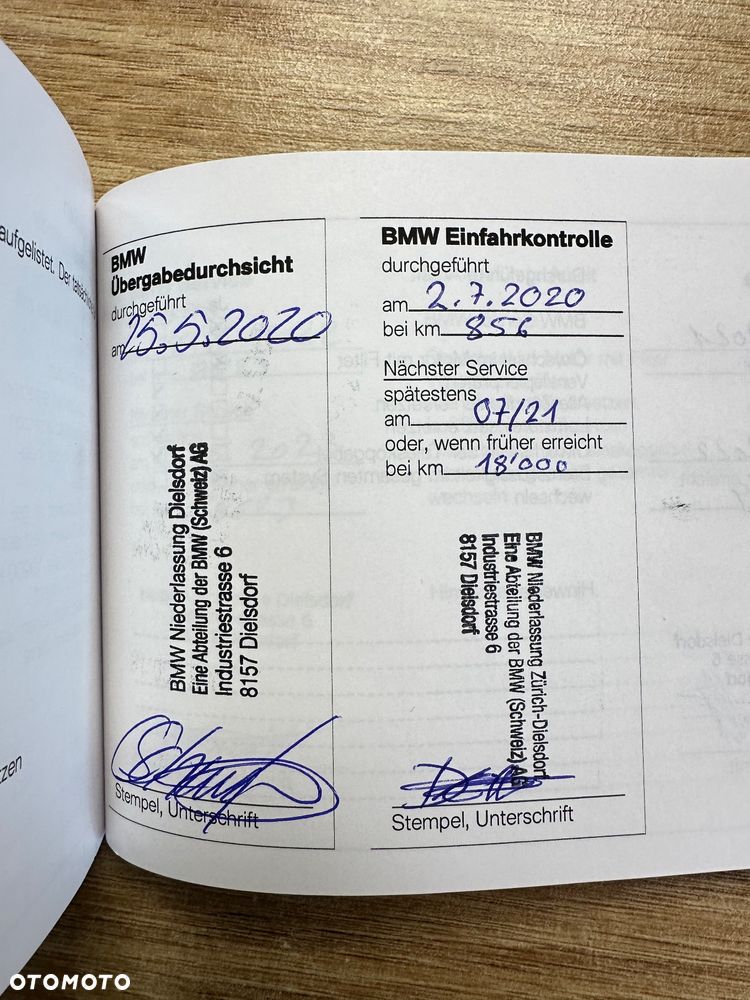 aufgelistet. Der
zen
BMW
Übergabedurchsicht
durchgeführt
am 15.5.2020
BMW Niederlassung Dielsdorf
Eine Abteilung der BMW (Schweiz) AG
Industriestrasse 6
8157 Dielsdorf
Stempel, Unterschrift
BMW Einfahrkontrolle
durchgeführt
am 2.7.2020
bei km 856
Nächster Service
spätestens
am 07/21
oder, wenn früher erreicht
bei km 18'000
BMW Niederlassung Zürich-Dielsdorf
Eine Abteilung der BMW (Schweiz) AG
Industriestrasse 6
8157 Dielsdorf
Stempel, Unterschrift
OTOMOTO